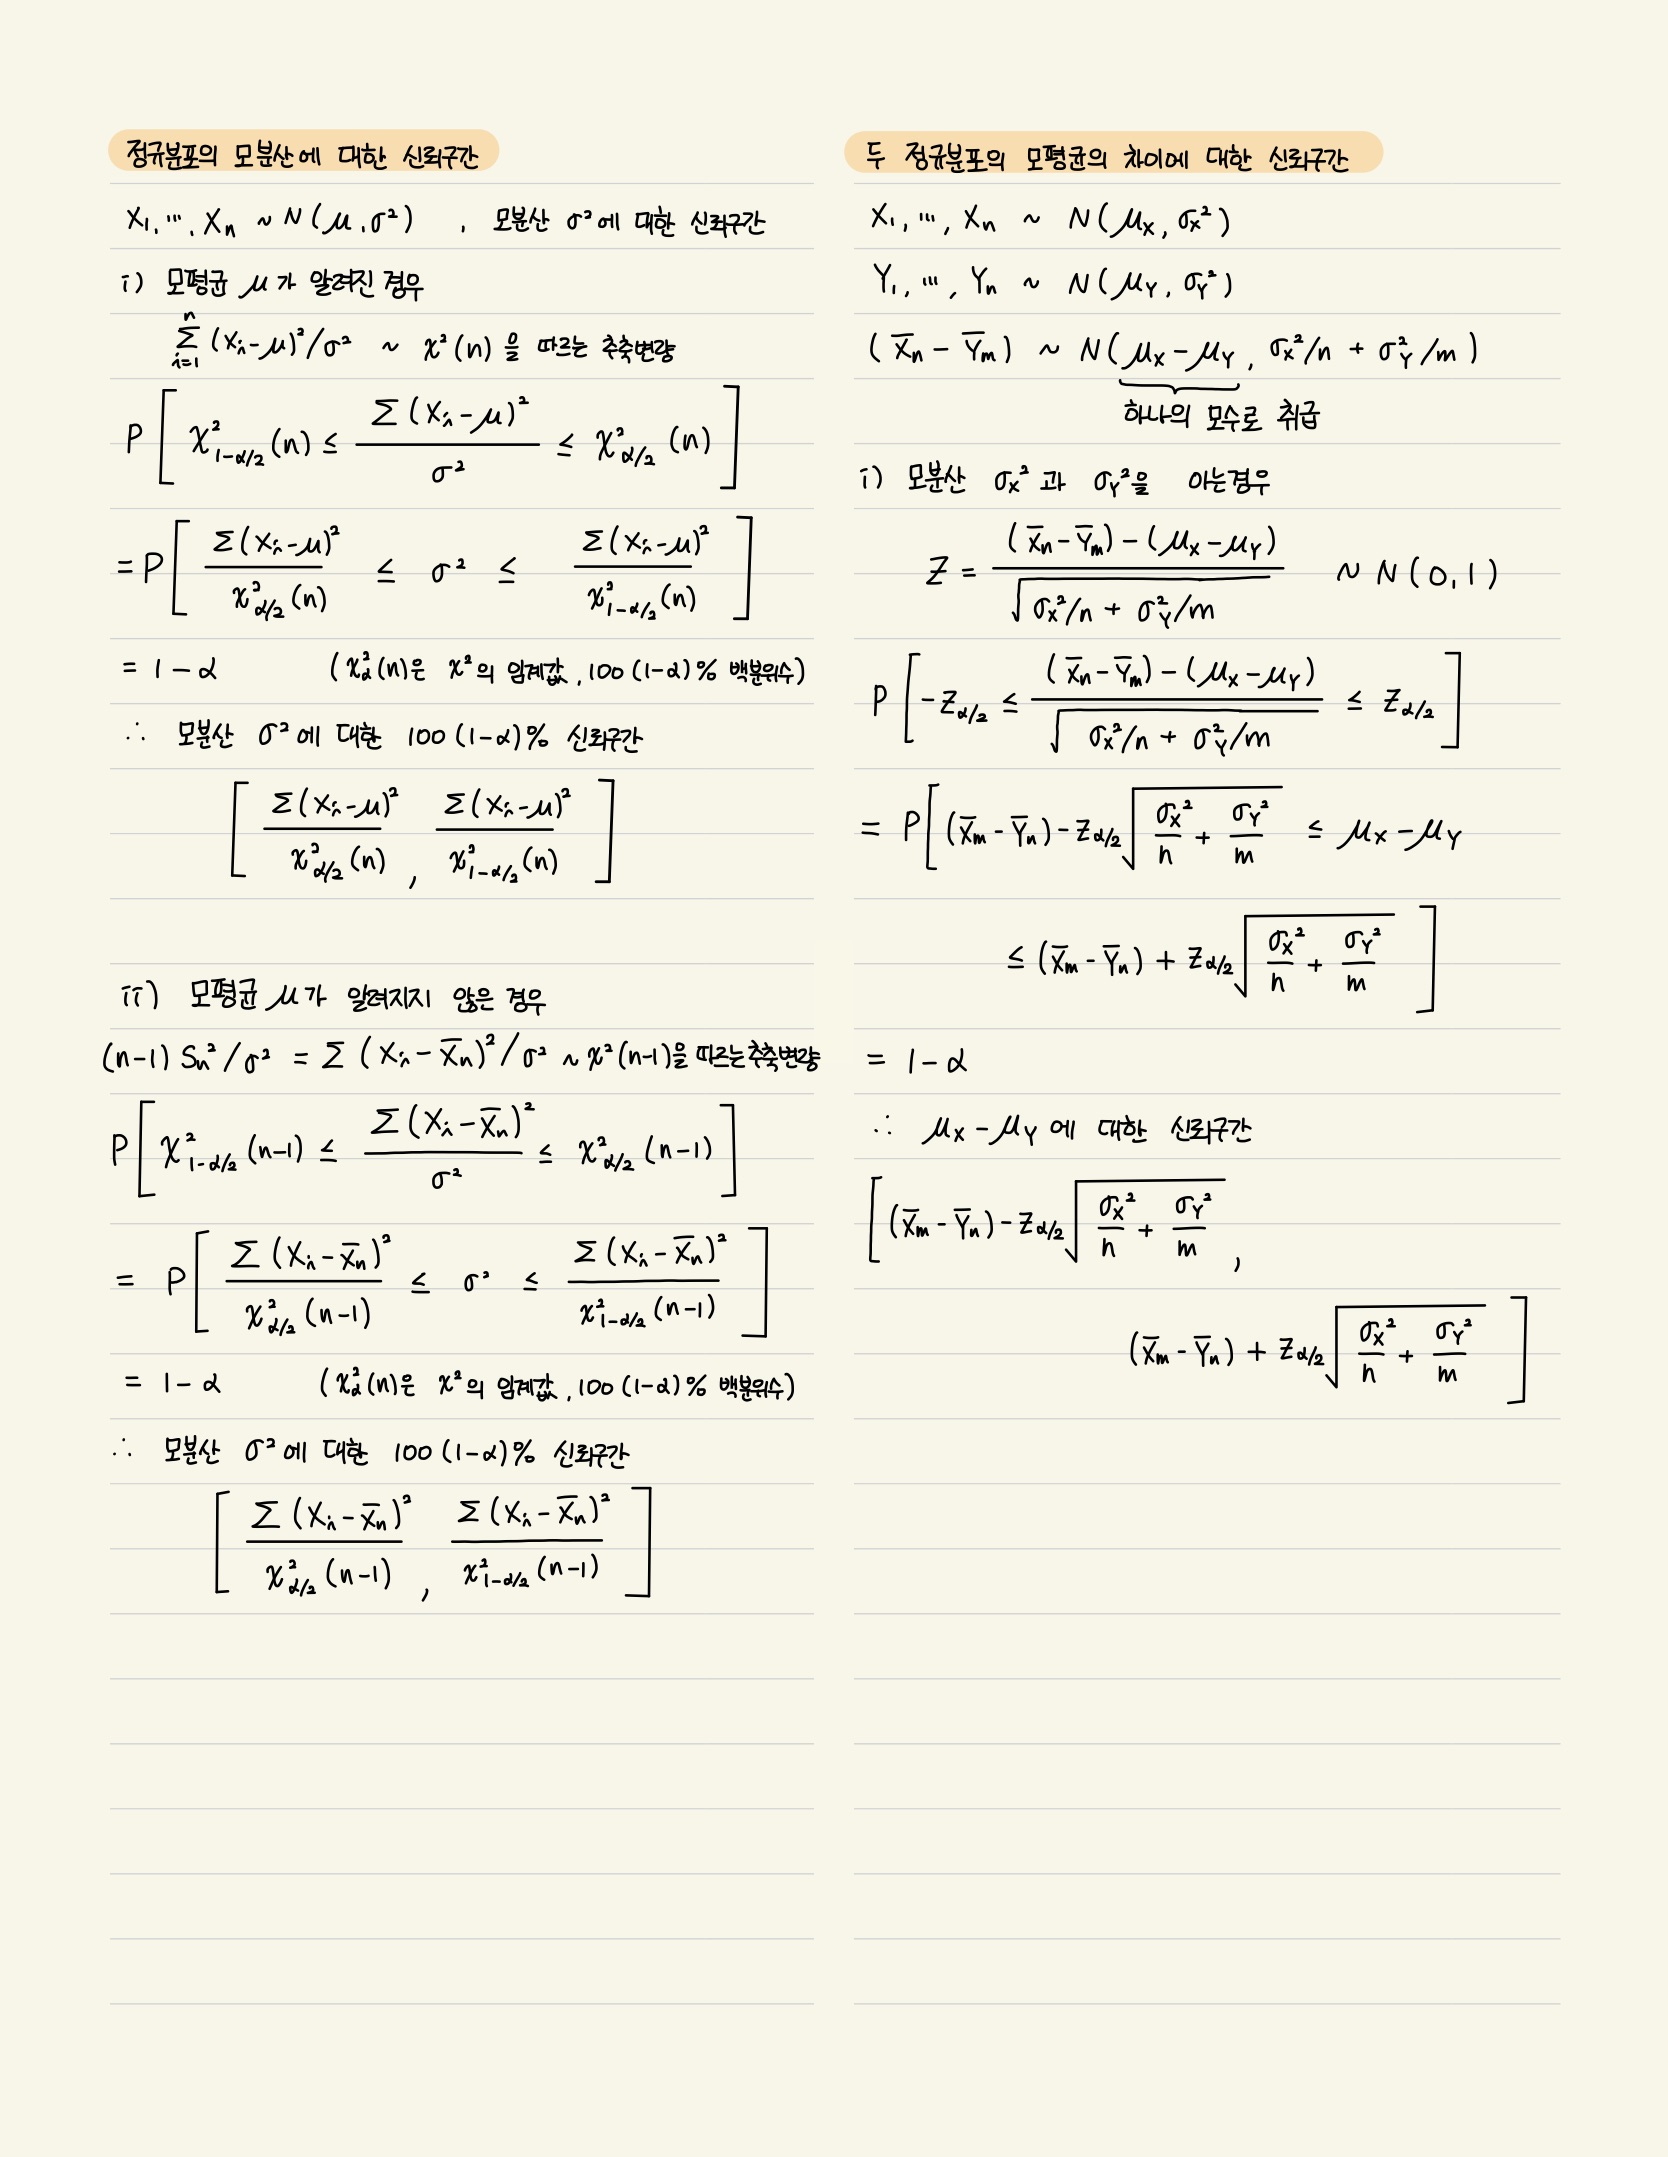 정규분포의 모분산에 대한 신뢰구간
X₁, ⋯, Xₙ ~ N(μ, σ²) , 모분산 σ²에 대한 신뢰구간
i) 모평균 μ가 알려진 경우
Σ_{i=1}^{n} (Xᵢ-μ)²/σ² ~ χ²(n) 을 따르는 추축변량
P[ χ²_{1-α/2}(n) ≤ Σ(Xᵢ-μ)² / σ² ≤ χ²_{α/2}(n) ]
= P[ Σ(Xᵢ-μ)² / χ²_{α/2}(n) ≤ σ² ≤ Σ(Xᵢ-μ)² / χ²_{1-α/2}(n) ]
= 1-α (χ²_α(n)은 χ²의 임계값, 100(1-α)% 백분위수)
∴ 모분산 σ²에 대한 100(1-α)% 신뢰구간
[ Σ(Xᵢ-μ)² / χ²_{α/2}(n) , Σ(Xᵢ-μ)² / χ²_{1-α/2}(n) ]
ii) 모평균 μ가 알려지지 않은 경우
(n-1)Sₙ²/σ² = Σ(Xᵢ-X̅ₙ)²/σ² ~ χ²(n-1)을 따르는 추축변량
P[ χ²_{1-α/2}(n-1) ≤ Σ(Xᵢ-X̅ₙ)² / σ² ≤ χ²_{α/2}(n-1) ]
= P[ Σ(Xᵢ-X̅ₙ)² / χ²_{α/2}(n-1) ≤ σ² ≤ Σ(Xᵢ-X̅ₙ)² / χ²_{1-α/2}(n-1) ]
= 1-α (χ²_α(n)은 χ²의 임계값, 100(1-α)% 백분위수)
∴ 모분산 σ²에 대한 100(1-α)% 신뢰구간
[ Σ(Xᵢ-X̅ₙ)² / χ²_{α/2}(n-1) , Σ(Xᵢ-X̅ₙ)² / χ²_{1-α/2}(n-1) ]
두 정규분포의 모평균의 차이에 대한 신뢰구간
X₁, ⋯, Xₙ ~ N(μ_X, σ_X²)
Y₁, ⋯, Yₙ ~ N(μ_Y, σ_Y²)
(X̅ₙ - Y̅ₘ) ~ N(μ_X-μ_Y, σ_X²/n + σ_Y²/m)
하나의 모수로 취급
i) 모분산 σ_X²과 σ_Y²을 아는경우
Z = ((X̅ₙ-Y̅ₘ)-(μ_X-μ_Y)) / √(σ_X²/n + σ_Y²/m) ~ N(0,1)
P[ -Z_{α/2} ≤ ((X̅ₙ-Y̅ₘ)-(μ_X-μ_Y)) / √(σ_X²/n + σ_Y²/m) ≤ Z_{α/2} ]
= P[ (X̅ₘ-Y̅ₙ)-Z_{α/2}√(σ_X²/n + σ_Y²/m) ≤ μ_X-μ_Y
≤ (X̅ₘ-Y̅ₙ) + Z_{α/2}√(σ_X²/n + σ_Y²/m) ]
= 1-α
∴ μ_X-μ_Y에 대한 신뢰구간
[ (X̅ₘ-Y̅ₙ)-Z_{α/2}√(σ_X²/n + σ_Y²/m) ,
(X̅ₘ-Y̅ₙ) + Z_{α/2}√(σ_X²/n + σ_Y²/m) ]